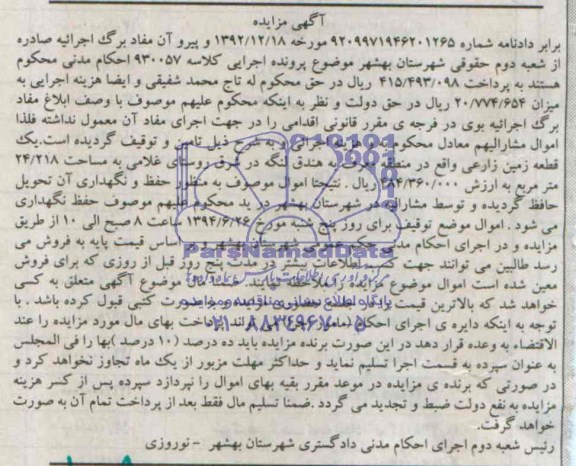 آگهی مزایده
برابر دادنامه شماره ۹۲۰۹۹۷۱۹۴۶۲۰۱۲۶۵ مورخه ۱۳۹۲/۱۲/۱۸ و پیرو آن مفاد برگ اجرائیه صادره
از شعبه دوم حقوقی شهرستان بهشهر موضوع پرونده اجرایی کلاسه ۹۳۰۰۵۷ احکام مدنی محکوم
هستند به پرداخت ۴۱۵/۴۹۳/۰۹۸ ریال در حق محکوم له تاج محمد شفیقی و ایضا هزینه اجرایی به
میزان ۲۰/۷۷۴/۶۵۴ ریال در حق دولت و نظر به اینکه محکوم علیهم موصوف با وصف ابلاغ مفاد
برگ اجرائیه بوی در فرجه ی مقرر قانونی اقدامی را در جهت اجرای مفاد آن معمول نداشته فلذا
اموال مشارالیهم معادل محکوم به و هزینه اجرائی و به شرح ذیل تامین و توقیف گردیده است.یک
قطعه زمین زارعی واقع در منطقه معروف به هندق لنگه در شرق روستای غلامی به مساحت ۲۴/۲۱۸
متر مربع به ارزش ریال . نتیجتا اموال موصوف به منظور حفظ و نگهداری آن تحویل
حافظ گردیده و توسط مشارالیه در شهرستان بهشهر در ید محکوم علیهم موصوف حفظ نگهداری
می شود . اموال موضع توقیف برای روز پنج شنبه مورخ ۱۳۹۴/۶/۲۶ ساعت ۸ صبح الی ۱۰ از طریق
مزایده و در اجرای احکام مدنی حکم عمومی شهرستان بهشهر و بر اساس قیمت پایه به فروش می
رسد طالبین می توانند جهت کسب اطلاعات بیشتر در ظرف پنج روز قبل از روزی که برای فروش
معین شده است اموال موضوع مزایده را ملاحظه نمایند. موضوع آگهی متعلق به کسی
خواهد شد که بالاترین قیمت را کتبی قبول کرده باشد . با
توجه به اینکه دایره ی اجرای احکام پرداخت بهای مال مورد مزایده را عند
الاقتضاء به وعده قرار دهد در این صورت برنده مزایده باید ده درصد (۱۰ درصد )بها را فی المجلس
به عنوان سپرده به قسمت اجرا تسلیم نماید و حداکثر مهلت مزبور از یک ماه تجاوز نخواهد کرد و
در صورتی که برنده ی مزایده در موعد مقرر بقیه بهای اموال را نپردازد سپرده پس از کسر هزینه
مزایده به نفع دولت ضبط و تجدید می گردد .ضمنا تسلیم مال فقط بعد از پرداخت تمام آن به صورت
خواهد گرفت.
رئیس شعبه دوم اجرای احکام مدنی دادگستری شهرستان بهشهر - نوروزی
ParsNamadData
۰۲۱-۸۸۳۴۹۶۷۰-۵